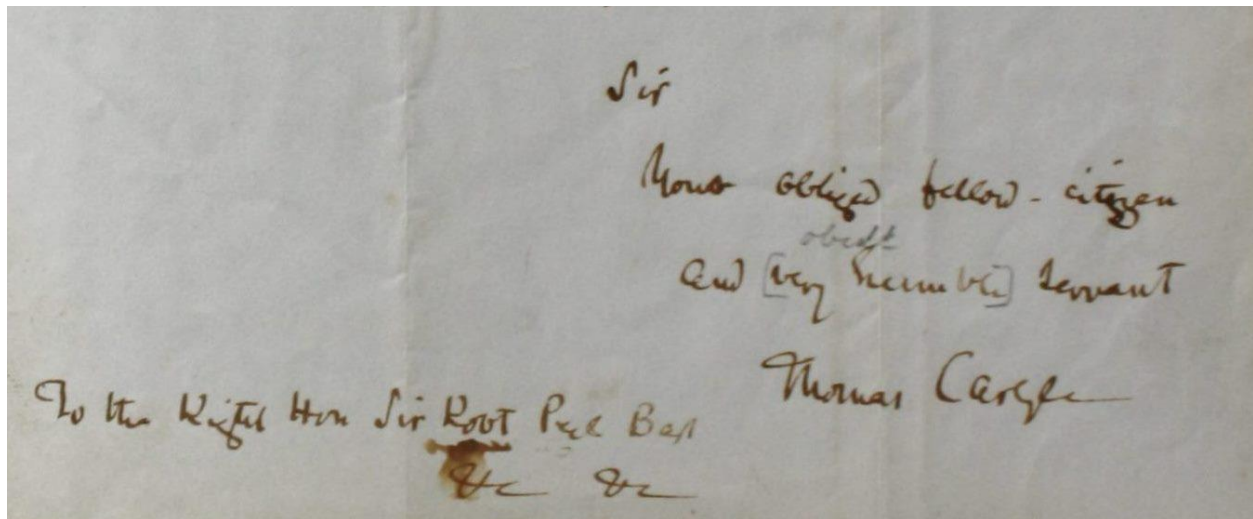 Sir
Your obliged fellow-citizen
obedt
and [very humble] servant
Thomas Carlyle
To the Right Hon Sir Robt Peel Bart
&c &c